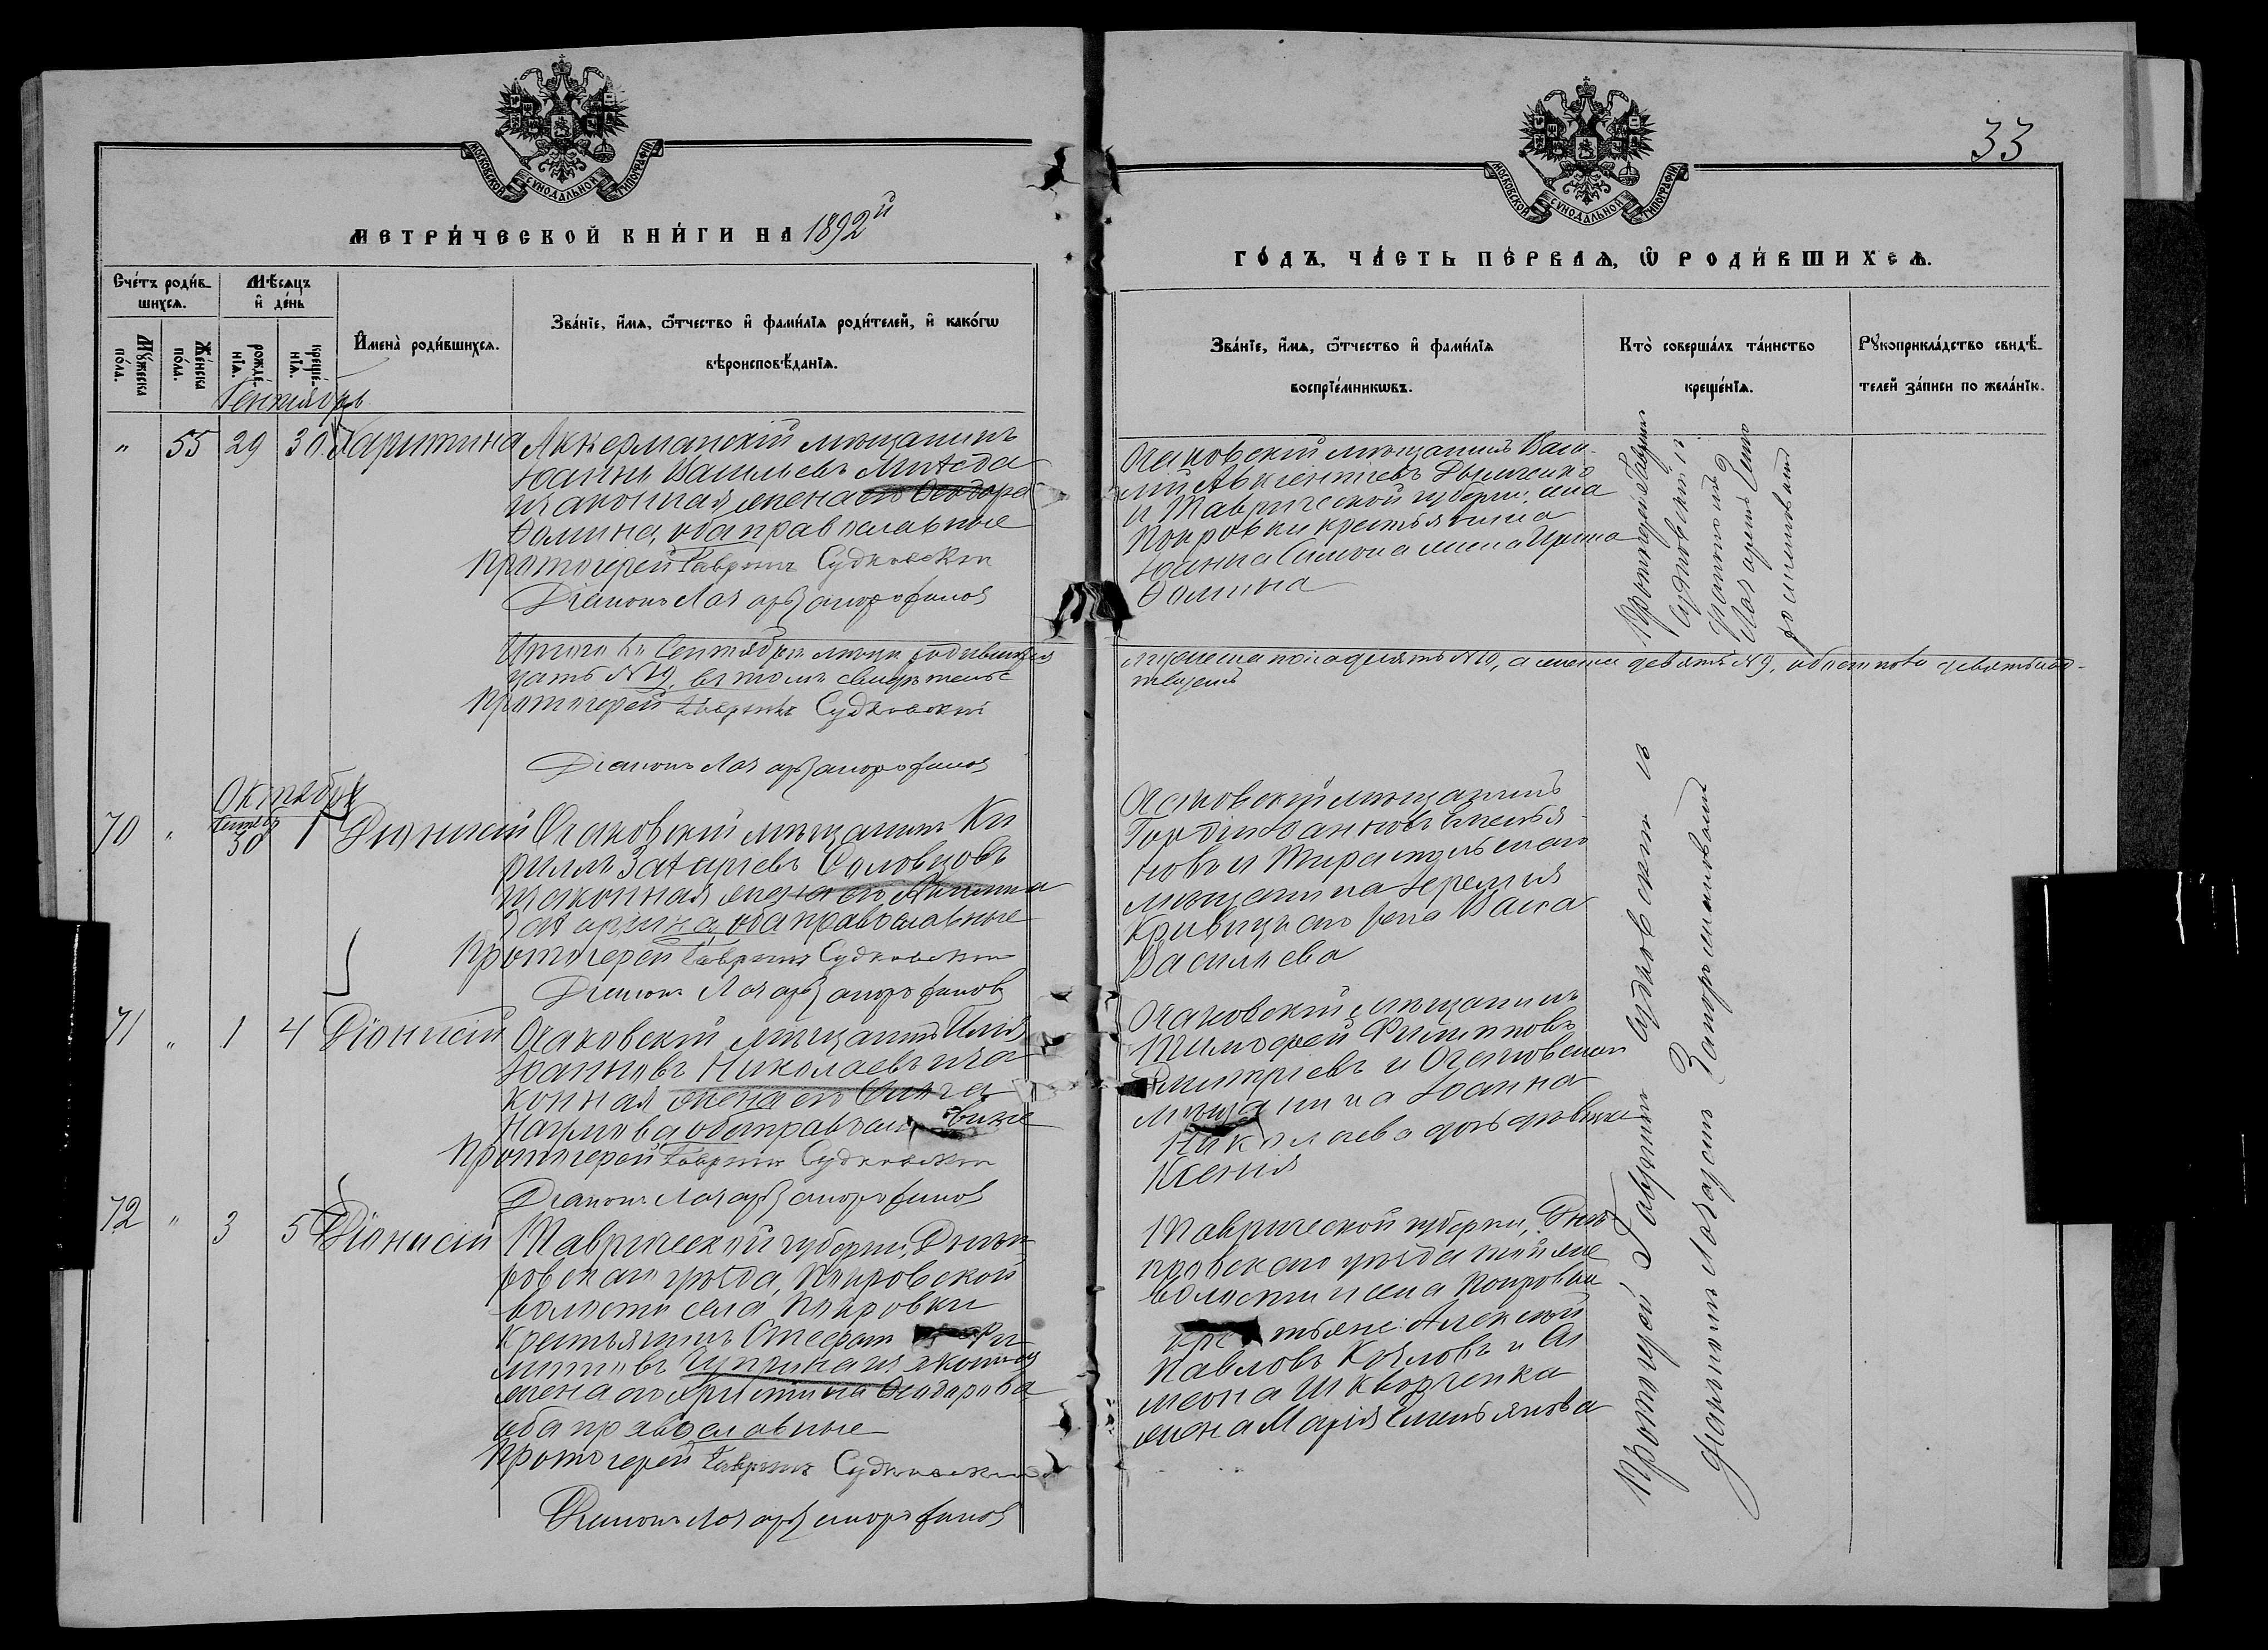 МОСКОВСКОЙ СѴНОДАЛЬНОЙ ТИПОГРАФІИ
МЕТРИ́ЧЕСКОЙ КНИ́ГИ НА 1892й
Сче́тъ роди́в-
шихсѧ.
Мѣ́сѧцъ
и҆ де́нь
Мꙋ́жеска
по́ла.
Же́нска
по́ла.
рожде́-
нїѧ.
креще́-
нїѧ.
И҆мена̀ роди́вшихсѧ.
Зва́нїе, и҆́мѧ, ѿтчество и҆ фами́лїѧ роди́телей, и҆ како́гѡ
вѣроисповѣ́данїѧ.
Сентябрь
" 55 29 30 Харитина
Аккерманскій мѣщанинъ
Іоаннъ Васильевъ
и законная жена его Ѳеодора
Ѳомина, оба православные
Протоіерей Гавріилъ Судковскій
Діаконъ Лазарь
Итого въ Сентябрѣ мѣсяцѣ родившихся
цать №19, въ томъ свидѣтельс
Протоіерей Гавріилъ Судковскій
Діаконъ Лазарь
Октябрь
70 " Сентяб 30 1 Діонисій
Очаковскій мѣщанинъ Ки
риллъ Захаріевъ Соловьовъ
и законная жена его
оба православные
Протоіерей Гавріилъ Судковскій
Діаконъ Лазарь
71 " 1 4 Діонисій
Очаковскій мѣщанинъ Илія
Іоанновъ Николаевъ и за
конная жена его
Наумова оба православные
Протоіерей Гавріилъ Судковскій
Діаконъ Лазарь
72 " 3 5 Діонисій
Таврической губерніи, Днѣп
ровскаго уѣзда, Покровской
волости села Покровки
крестьянинъ Стефанъ
Чуприна и законная
жена его Христина Ѳеодорова
оба православные
Протоіерей Гавріилъ Судковскій
Діаконъ Лазарь
МОСКОВСКОЙ СѴНОДАЛЬНОЙ ТИПОГРАФІИ
33
ГО́ДЪ, ЧА́СТЬ ПЕ́РВАѦ, Ѡ҆ РОДИ́ВШИХСѦ.
Зва́нїе, и҆́мѧ, ѿтчество и҆ фами́лїѧ
воспрїе́мникѡвъ.
Кто̀ соверша́лъ та́инство
креще́нїѧ.
Рꙋкоприкла́дство свидѣ́-
телей за́писи по жела́нїю.
Очаковскій мѣщанинъ Васи-
лій Авксентіевъ
и Таврической губерніи, села
Покровки крестьянина
Іоанна Симона жена Ирина
Ѳомина
Протоіерей Гавріилъ
Судковскій съ
діакономъ
Лазаремъ
мужеска пола десять №10, а женска девять №9, обоего пола девятьнад-
твуемъ
Очаковскій мѣщанинъ
Гордій Іоанновъ Емелья
новъ и Тираспольскаго
мѣщанина Іеремія
Кривицкаго жена Васса
Васильева
Очаковскій мѣщанинъ
Тимоѳей Филипповъ
Дмитріевъ и Очаковскаго
мѣщанина Іоанна
Николаева дочь дѣвица
Ксенія
Таврической губерніи, Днѣ
провскаго уѣзда той же
волости и села Покровки
крестьяне: Алексѣй
Павловъ Козловъ и Си
меона Шкворченка
жена Марія Емельянова
Протоіерей Гавріилъ Судковскій съ
діакономъ Лазаремъ